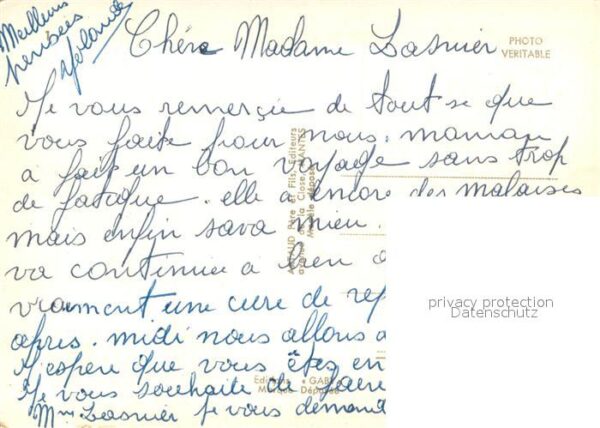 Meilleurs
pensées
Yolande
Chére Madame Lasnier
PHOTO
VERITABLE
Je vous remerçie de tout se que
vous faite pour nous. maman
a fait un bon voyage sans trop
de fatigue. elle a encore des malaises
mais enfin sava mieu.
va continuer a
vraiment une cure de rep
apres. midi nous allons a
J'espere que vous êtes en
Je vous souhaite de faire
Mme Lasnier je vous demand
ARTAUD Père et Fils, Editeurs
Close, NANTES
Modèle déposé
Editions "GABY"
Marque Déposée
privacy protection
Datenschutz